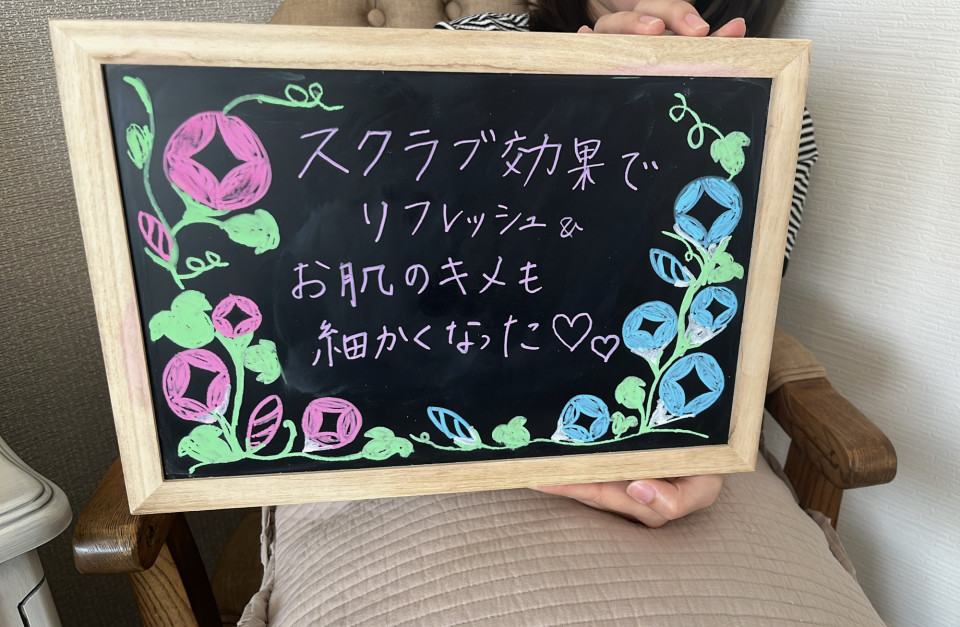 スクラブ効果で
リフレッシュ&
お肌のキメも
細かくなった♡♡